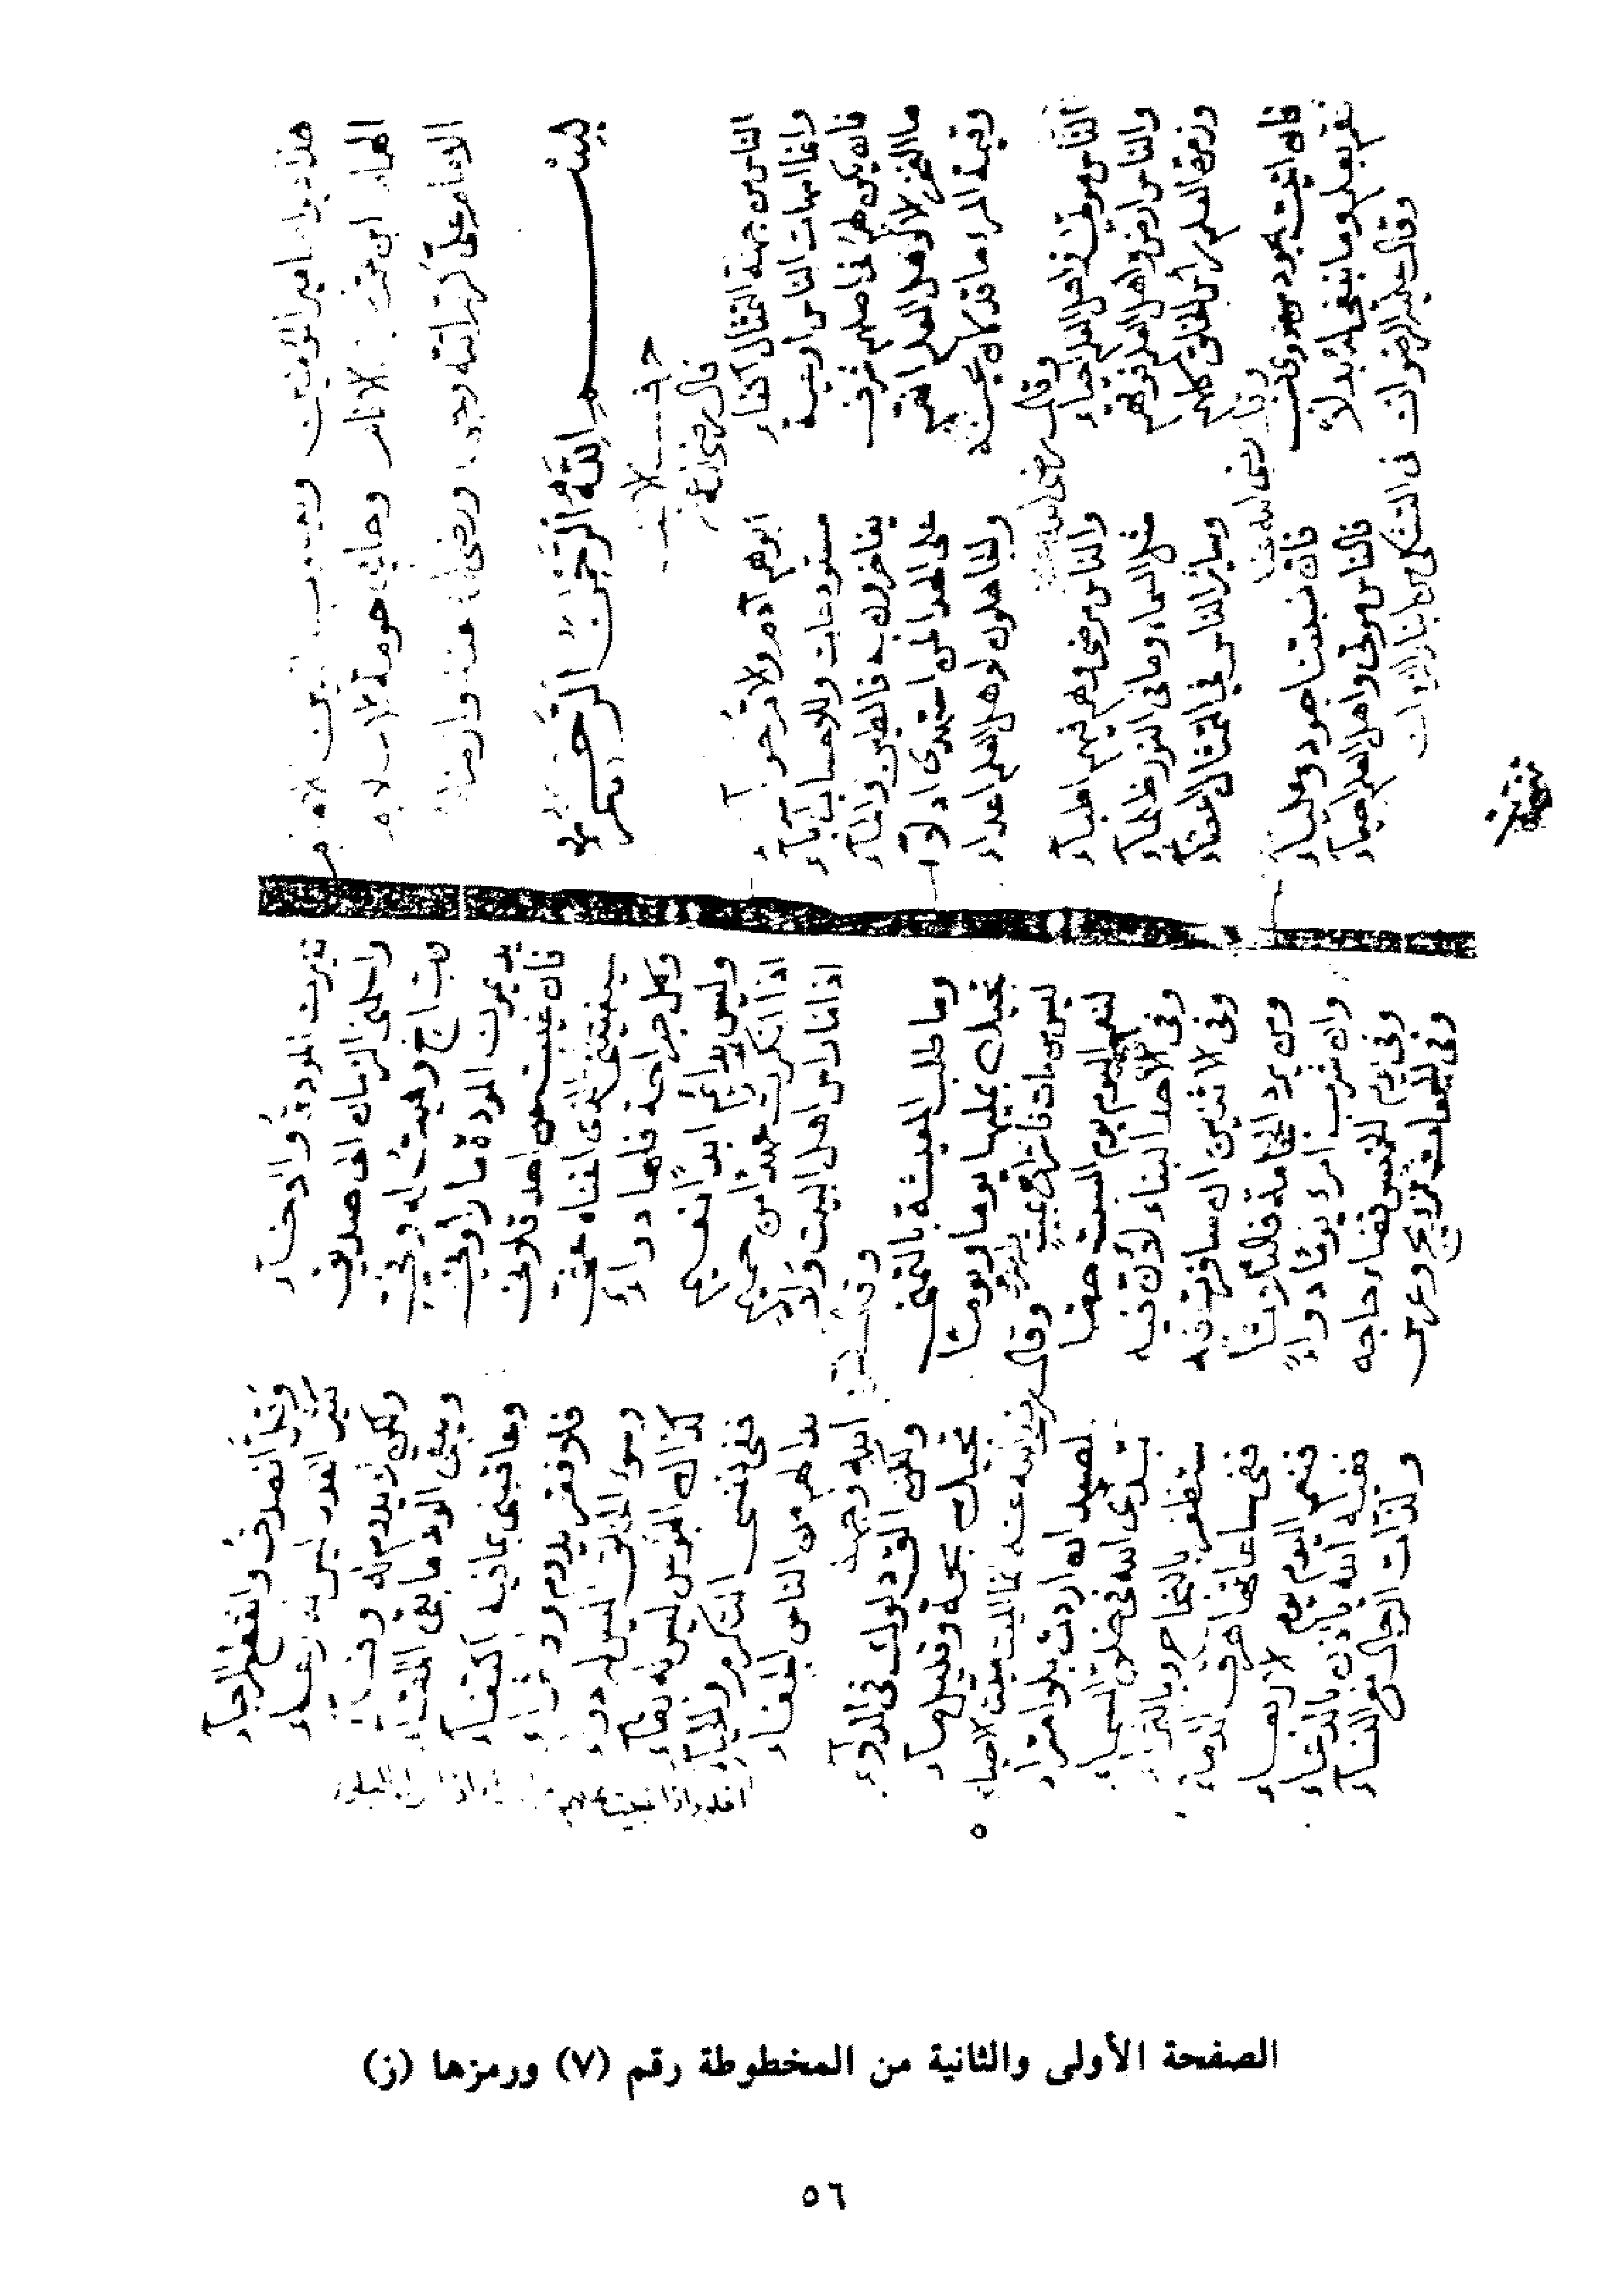 هذا ديوان امير المؤمنين ويعسوب
الامام على كرم الله وجهه ورضى عنه وارضاه
بسم الله الرحمن الرحيم
حرف الا
قال رضى الله عنه
الناس من جهة التمثال اكفاء ابوهم آدم والام حواء
وانما امهات الناس اوعية مستودعات وللاحساب آباء
فان يكن لهم فى اصلهم شرف يفاخرون به فالطين والماء
ما الفخر الا لاهل العلم انهم على الهدى لمن استهدى ادلاء
وقيمة المرء ما قد كان يحسنه والجاهلون لاهل العلم اعداء
وقال رضى الله عنه
الناس موتى واهل العلم احياء والناس مرضى وهم فيهم اطباء
والناس ارض واهل العلم فوقهم مثل السماء وما فى النور ظلماء
وزمرة العلم رأس الخلق كلهم وسائر الناس فى التمثال اعضاء
وقال رضى الله عنه
فان اتيت بجود من ذوى نسب فان نسبتنا جود وعلياء
فقم بعلم وما نبغى له بدلا فالناس موتى واهل العلم احياء
وقال عليه الرضوان فى التشكى من ابناء الزمان
تغيرت المودة والاخاء وقل الصدق وانقطع الرجاء
واسلمنى الزمان الى صديق كثير الغدر ليس له رعاء
ورب اخ وفيت له وفى ولكن لا يدوم له وفاء
يديمون المودة ما رأونى ويبقى الود ما بقى اللقاء
فان غيبت عن احد قلانى وعاقبنى بما فيه اكتفاء
سيغنينى الذى اغناه عنى فلا فقر يدوم ولا ثراء
وكل جراحة فلها دواء وسوء الخلق ليس له دواء
وليس بدائم ابدا نعيم كذاك البؤس ليس له بقاء
اذا انكرت عهدا من حميم ففى نفسى التكرم والحياء
اذا ما رأس اهل البيت ولى بدا لهم من الناس الجفاء
وما طلب المعيشة بالتمنى ولكن الق دلوك فى الدلاء
تجئك بملئها يوما ويوما تجئك بحمأة وقليل ماء
وقال رضى الله عنه
ليس من مات فاستراح بميت انما الميت ميت الاحياء
لنعم اليوم يوم السبت حقا لصيد ان اردت بلا امتراء
وفى الاحد البناء لان فيه تبدى الله فى خلق السماء
وفى الاثنين ان سافرت فيه ستظفر بالنجاح وبالثراء
ومن يرد الحجامة فالثلاثا ففى ساعاتها هرق الدماء
وان شرب امرء يوما دواء فنعم اليوم يوم الاربعاء
وفى يوم الخميس قضاء حاجه ففيه الله ياذن بالدعاء
وفى الجمعات تزويج وعرس ولذات الرجال مع النساء
الصفحة الأولى والثانية من المخطوطة رقم (٧) ورمزها (ز)
٥٦